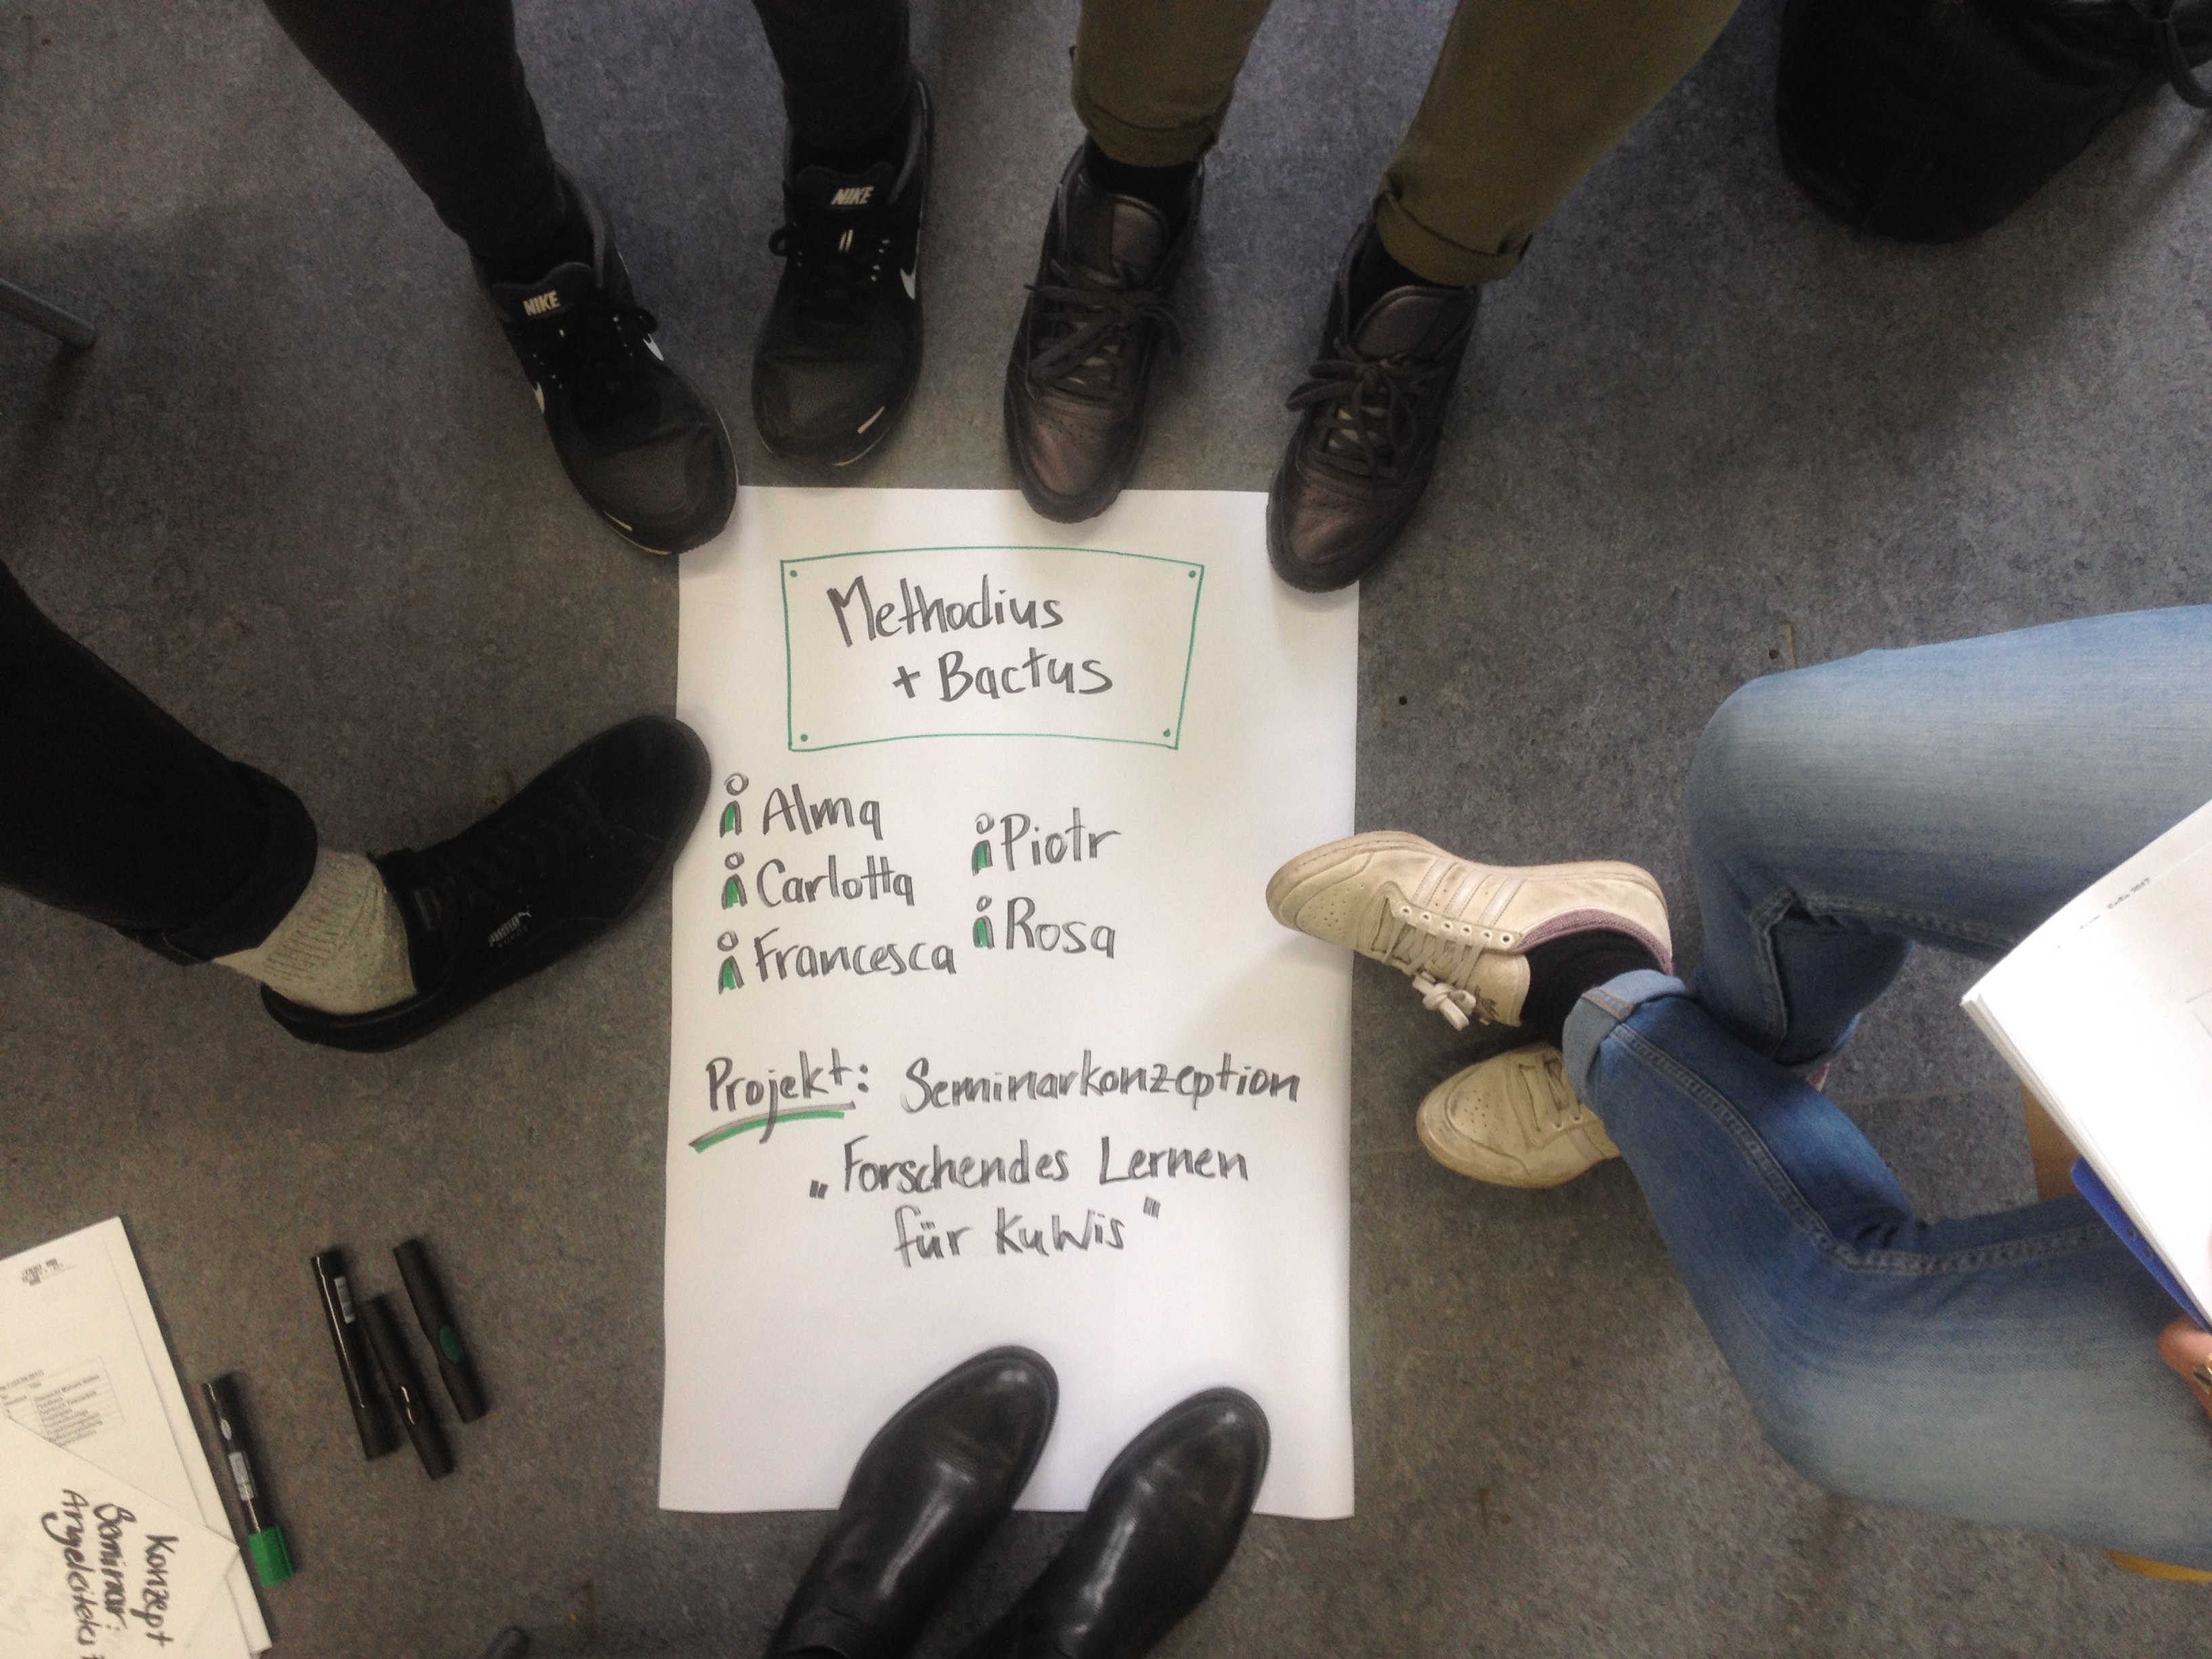 NIKE
NIKE
Methodius
+ Bactus
Alma
Carlotta
Francesca
Piotr
Rosa
Projekt: Seminarkonzeption
„Forschendes Lernen
für KuWis"
PUMA
Konzept
Seminar: